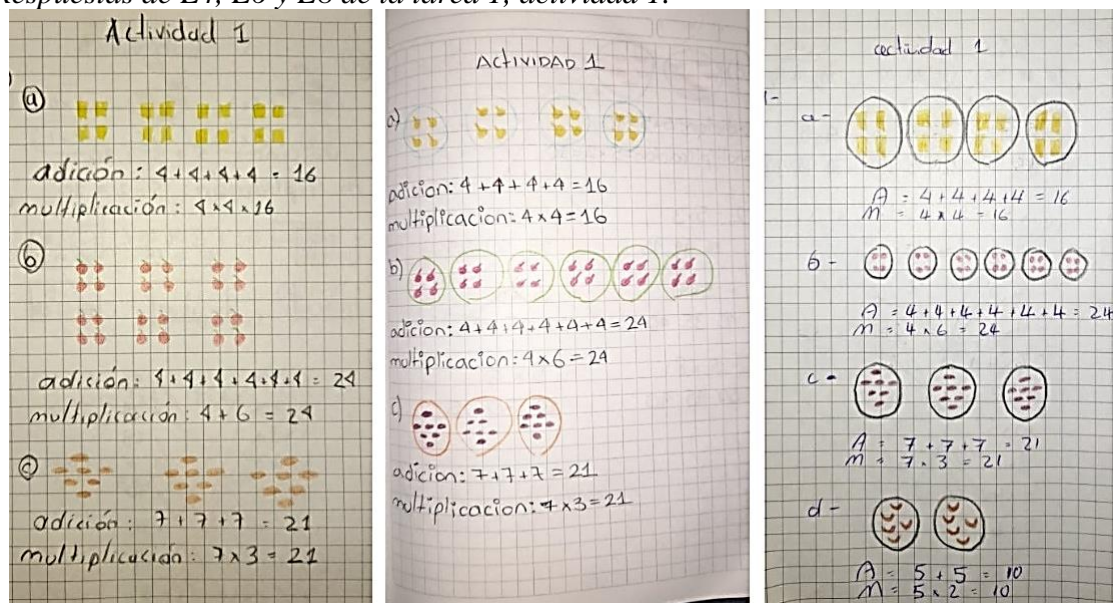 Respuestas de E4, E6 y E8 de la tarea 1, actividad 1.
Actividad 1
a
adición: 4+4+4+4 = 16
multiplicación: 4x4x16
b
adición: 4+4+4+4+4+4 = 24
multiplicación: 4+6 = 24
c
adición: 7+7+7 = 21
multiplicación: 7x3 = 21
ACtIVIDAD 1
a)
adicion: 4+4+4+4=16
multiplicacion: 4x4=16
b)
adicion: 4+4+4+4+4+4=24
multiplicacion: 4x6=24
c)
adicion: 7+7+7=21
multiplicacion: 7x3=21
1
1-
a-
A = 4+4+4+4 = 16
M = 4x4 = 16
b-
A = 4+4+4+4+4+4 = 24
M = 4x6 = 24
c-
A = 7+7+7 = 21
M = 7x3 = 21
d-
A = 5+5 = 10
M = 5x2 = 10